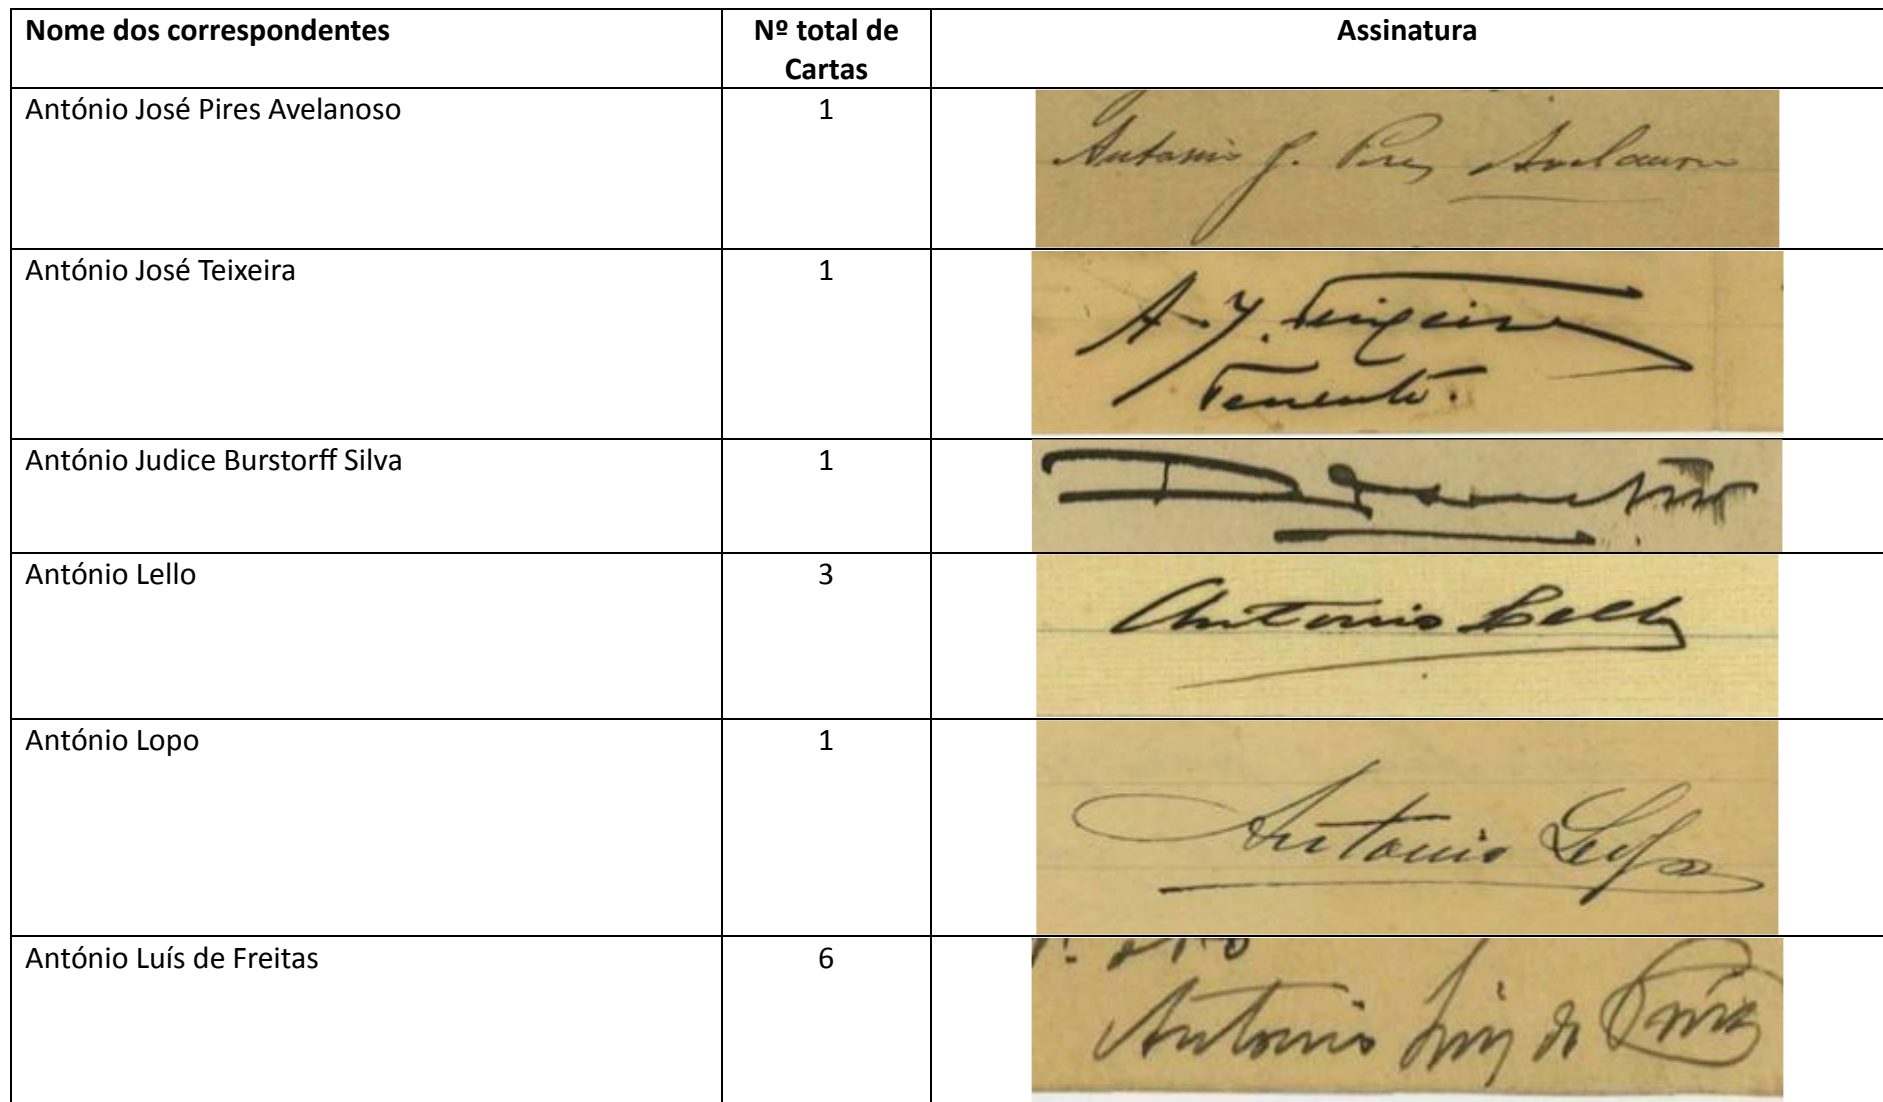 Nome dos correspondentes
Nº total de
Cartas
Assinatura
António José Pires Avelanoso
1
Antonio J. Pires Avelanoso
António José Teixeira
1
A. J. Teixeira
Tenente.
António Judice Burstorff Silva
1
António Lello
3
Antonio Lello
António Lopo
1
Antonio Lopo
António Luís de Freitas
6
Antonio Luiz de Freitas